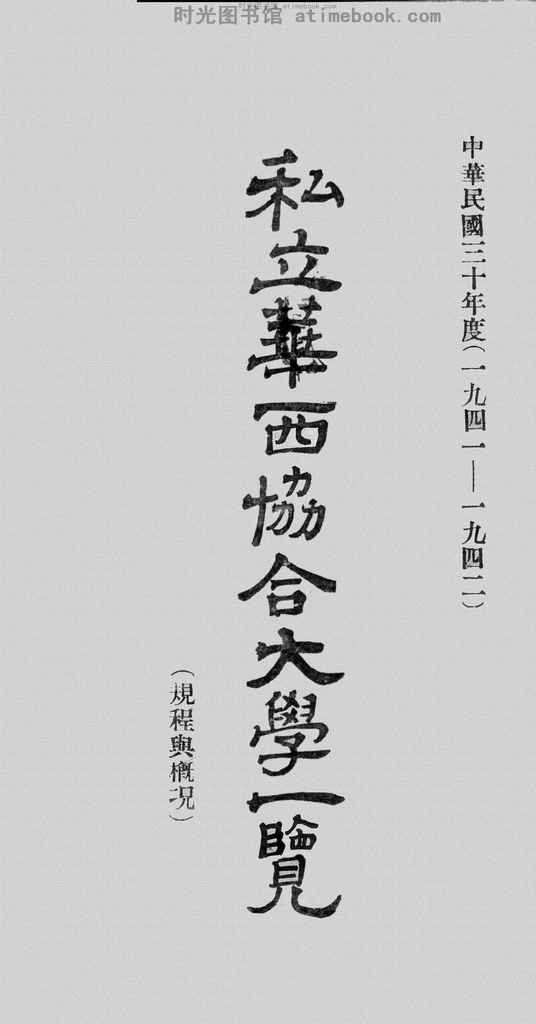 时光图书馆 atimebook.com
中華民國三十年度(一九四一—一九四二)
私立華西協合大學一覽
(規程與概況)